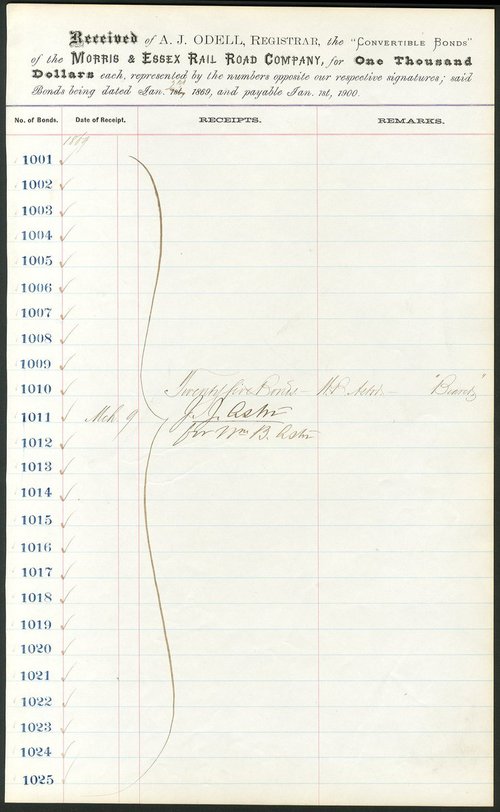 Received of A. J. ODELL, REGISTRAR, the "CONVERTIBLE BONDS"
of the MORRIS & ESSEX RAIL ROAD COMPANY, for One Thousand
Dollars each, represented by the numbers opposite our respective signatures; said
Bonds being dated Jan. 1st, 1869, and payable Jan. 1st, 1900.
No. of Bonds. Date of Receipt. RECEIPTS. REMARKS.
1869
1001
1002
1003
1004
1005
1006
1007
1008
1009
1010 Twenty five Bonds — W B Astor — "Board"
1011 Mch. 9 J. J. Astor
1012 for Wm B. Astor
1013
1014
1015
1016
1017
1018
1019
1020
1021
1022
1023
1024
1025